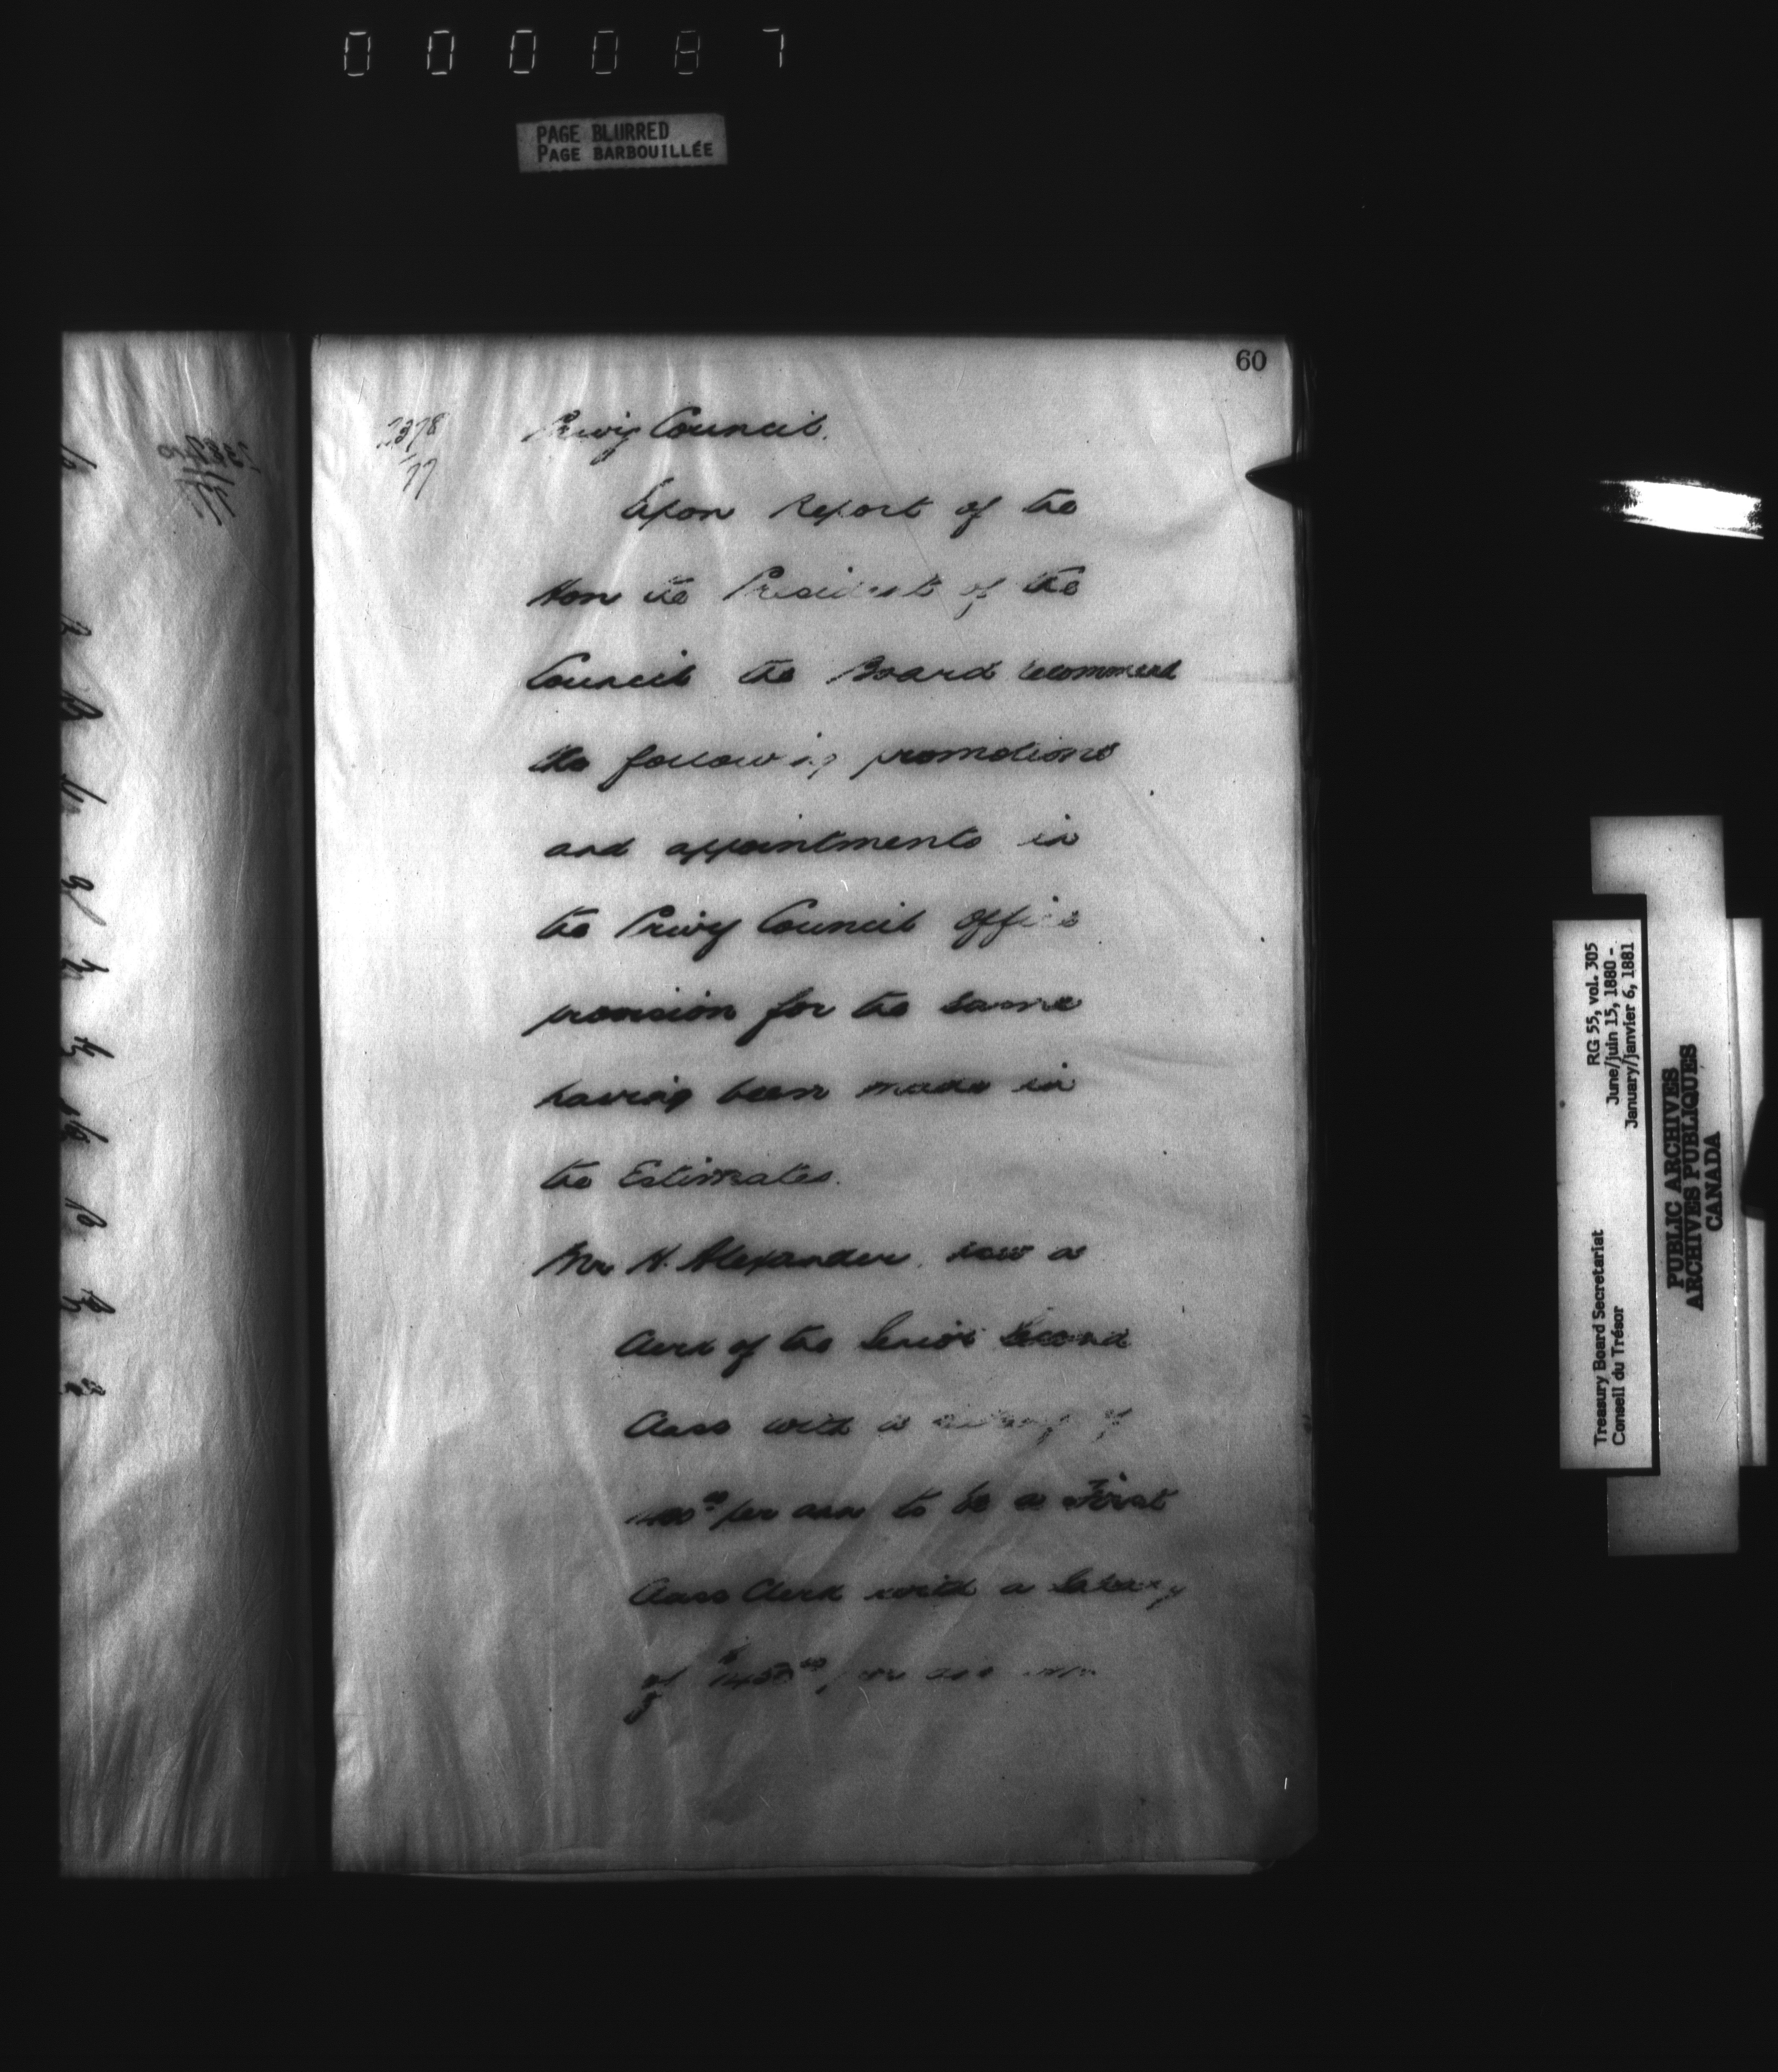 000087
PAGE BLURRED
PAGE BARBOUILLÉE
60
2378
Privy Council.
Upon Report of the
Hon the President of the
Council the Board recommend
the following promotions
and appointments in
the Privy Council Office
provision for the same
having been made in
the Estimates.
Mr H. Alexander, now a
Clerk of the Senior Second
Class with a salary of
per ann to be a First
Class Clerk with a Salary
of $1450.00, per
RG 55, vol. 305
June/juin 15, 1880 -
January/janvier 6, 1881
Treasury Board Secretariat
Conseil du Trésor
PUBLIC ARCHIVES
ARCHIVES PUBLIQUES
CANADA